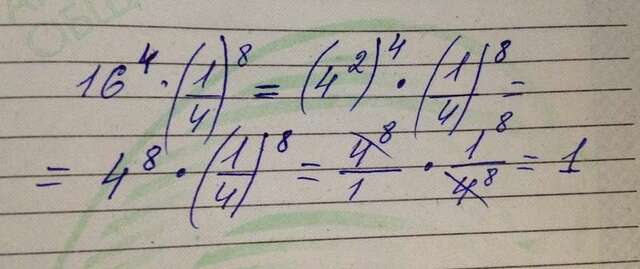 16⁴ · (1/4)⁸ = (4²)⁴ · (1/4)⁸ =
= 4⁸ · (1/4)⁸ = 4⁸/1 · 1⁸/4⁸ = 1